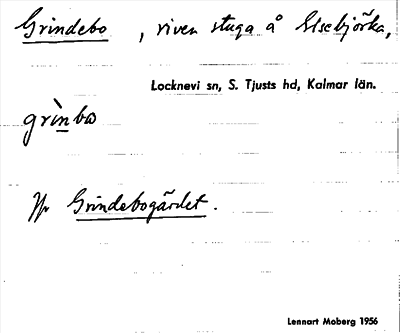 Grindebo , riven stuga å Elsebjörka,
Locknevi sn, S. Tjusts hd, Kalmar län.
grìnbω
Jfr Grindebogärdet.
Lennart Moberg 1956